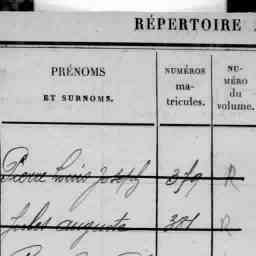 RÉPERTOIRE
PRÉNOMS
ET SURNOMS.
NUMÉROS
ma-
tricules.
NU-
MÉRO
du
volume.
Pierre Louis Joseph 379 R
Jules auguste 381 R